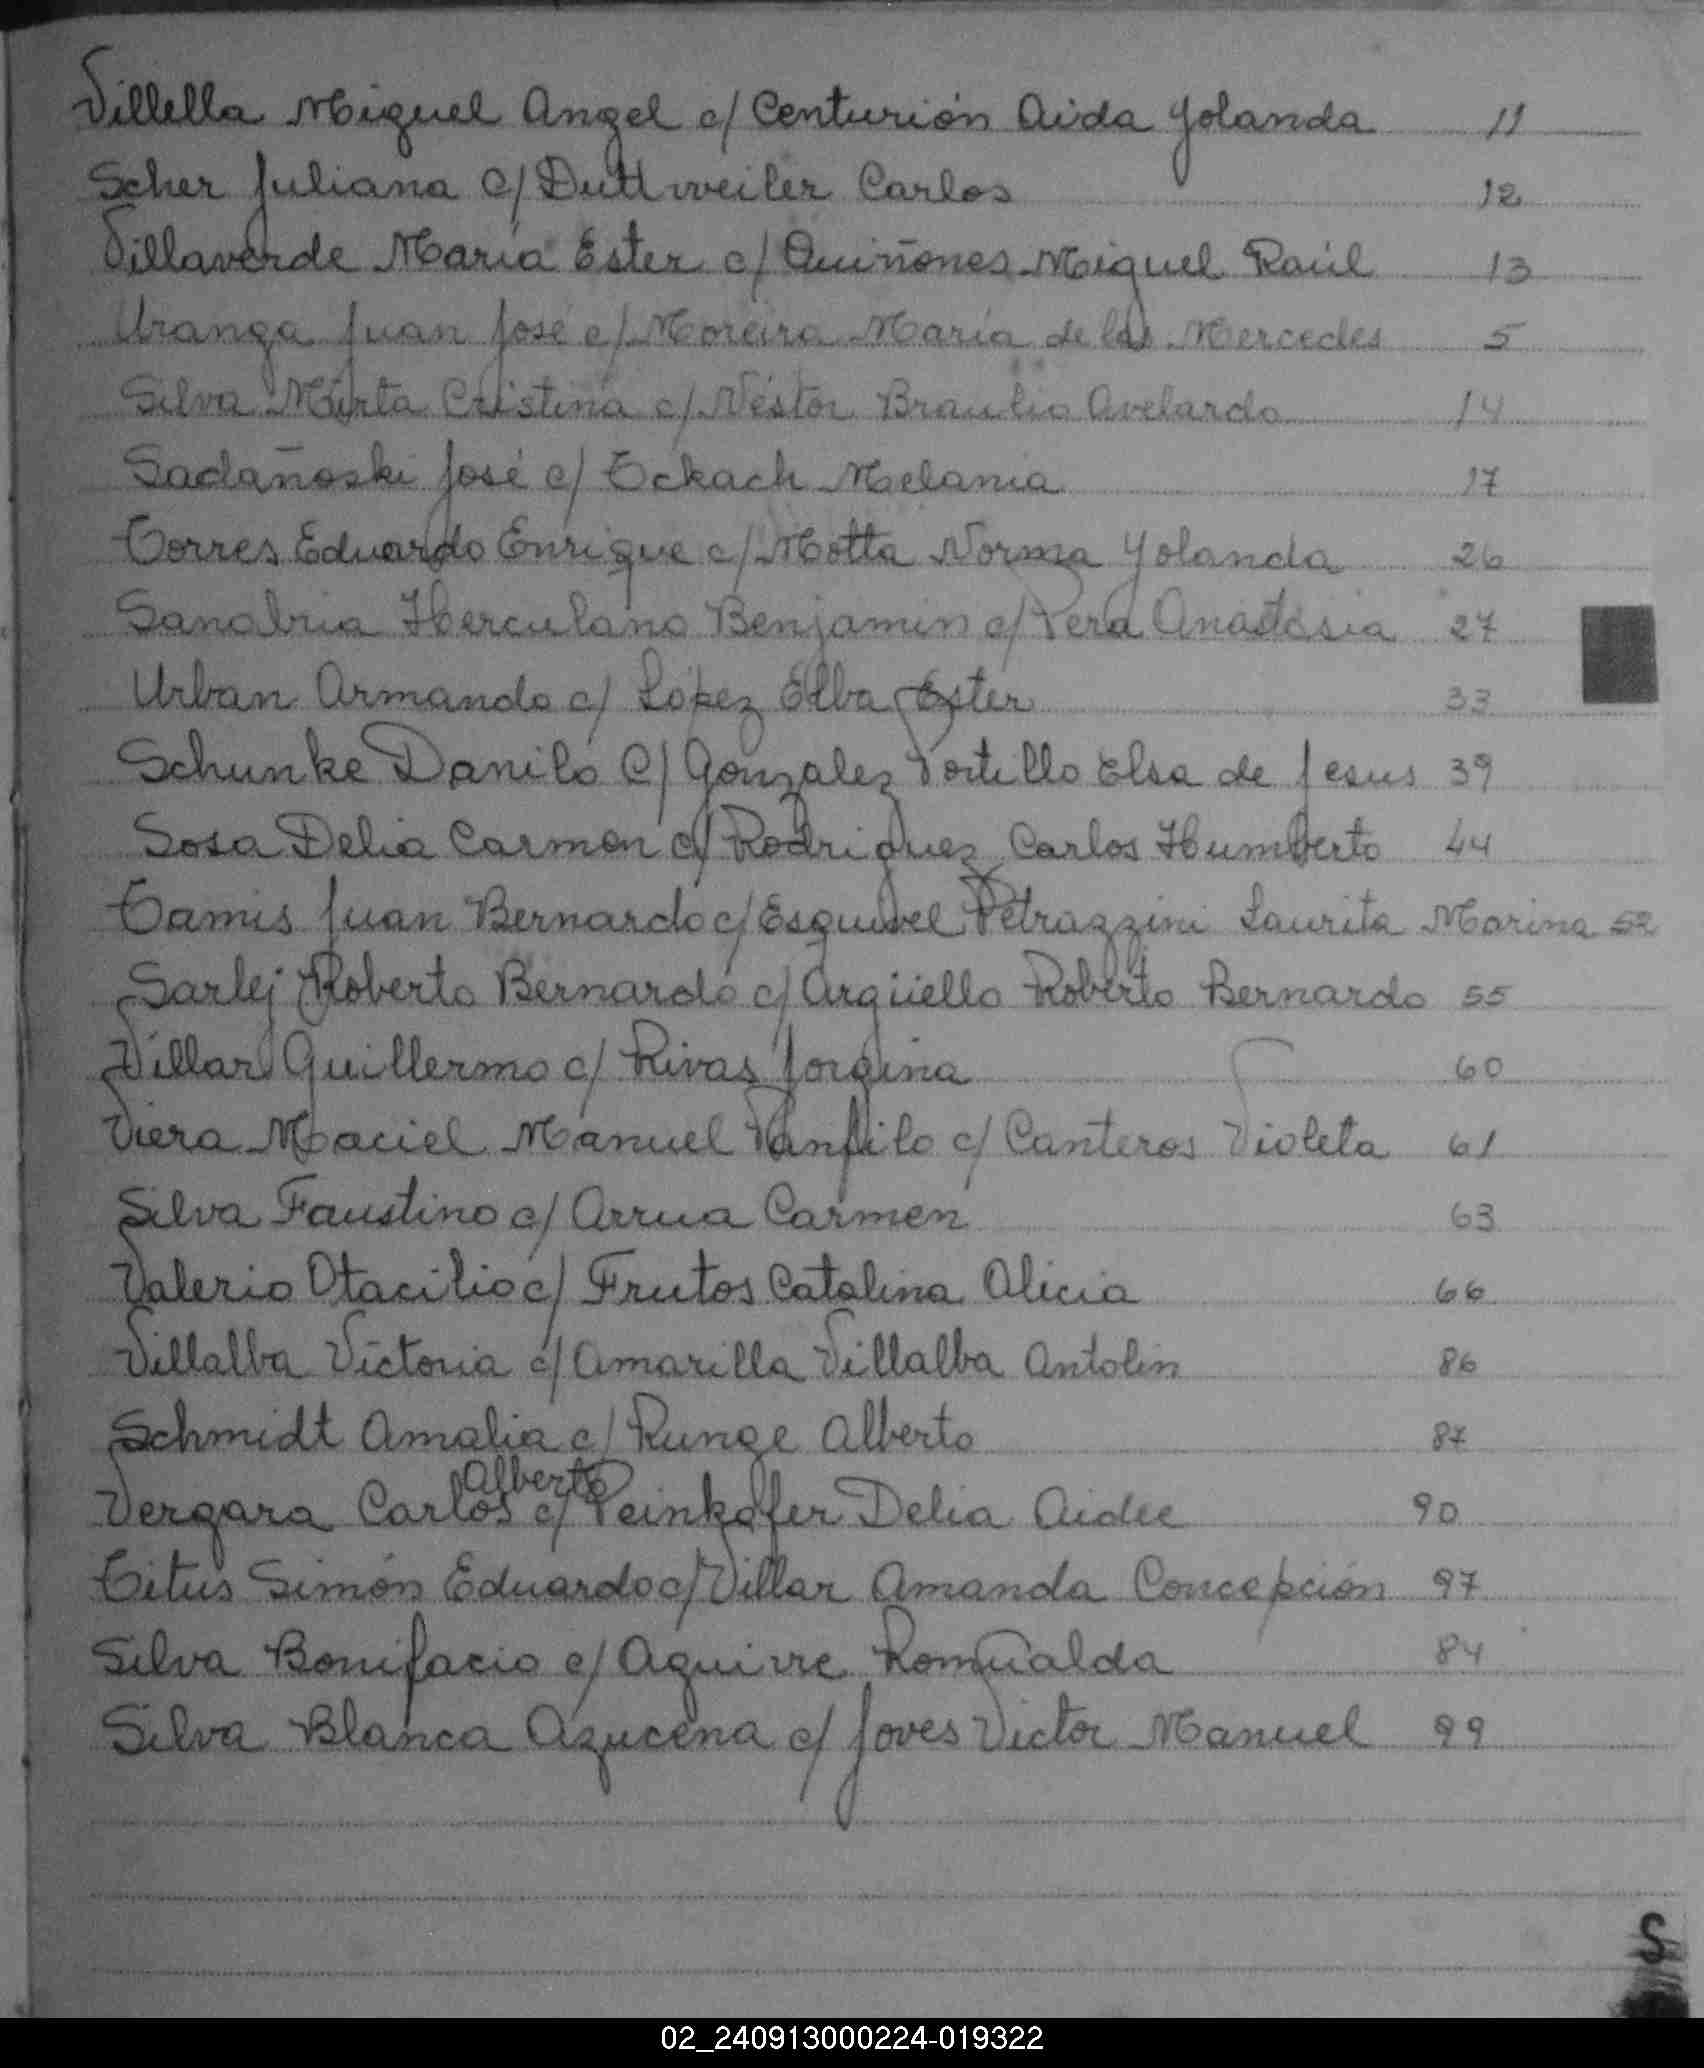 Villella Miguel Angel c/ Centurión Aida Yolanda 11
Scher Juliana c/ Duttweiler Carlos 12
Villaverde María Ester c/ Quiñones Miguel Raúl 13
Uranga Juan José c/ Moreira María de las Mercedes 5
Silva Mirta Cristina c/ Néstor Braulio Avelardo 14
Sadañoski José c/ Eckach Melania 17
Torres Eduardo Enrique c/ Motta Norma Yolanda 26
Sanabria Herculano Benjamin c/ Vera Anastasia 27
Urban Armando c/ López Elba Ester 33
Schunke Danilo c/ Gonzalez Portillo Elsa de Jesus 39
Sosa Delia Carmen c/ Rodriguez Carlos Humberto 44
Tamis Juan Bernardo c/ Esquivel Petrazzini Laurita Marina 52
Sarlej Roberto Bernardo c/ Argüello Roberto Bernardo 55
Villar Guillermo c/ Rivas Jorgina 60
Viera Maciel Manuel Panfilo c/ Canteros Violeta 61
Silva Faustino c/ Arrua Carmen 63
Valerio Otacilio c/ Frutos Catalina Alicia 66
Villalba Victoria c/ Amarilla Villalba Antolin 86
Schmidt Amalia c/ Runge Alberto 87
Vergara Carlos Alberto c/ Peinkofer Delia Aidee 90
Titus Simón Eduardo c/ Villar Amanda Concepción 97
Silva Bonifacio c/ Aguirre Romualda 84
Silva Blanca Azucena c/ Joves Victor Manuel 99
S
02_240913000224-019322